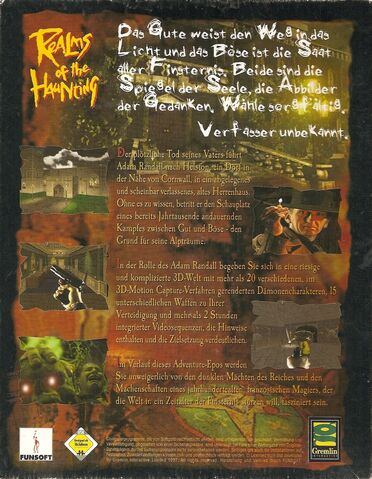 REALMS
of the
HAUNTING
Das Gute weist den Weg in das
Licht und das Böse ist die Saat
aller Finsternis. Beide sind die
Spiegel der Seele, die Abbilder
der Gedanken. Wähle sorgfältig.
Verfasser unbekannt.
Der plötzliche Tod seines Vaters führt
Adam Randall nach Helston, ein Dorf in
der Nähe von Cornwall, in ein abgelegenes
und scheinbar verlassenes, altes Herrenhaus.
Ohne es zu wissen, betritt er den Schauplatz
eines bereits Jahrtausende andauernden
Kampfes zwischen Gut und Böse - den
Grund für seine Alpträume.
In der Rolle des Adam Randall begeben Sie sich in eine riesige
und komplizierte 3D-Welt mit mehr als 20 verschiedenen, im
3D-Motion Capture-Verfahren gerenderten Dämonencharakteren, 15
unterschiedlichen Waffen zu Ihrer
Verteidigung und mehr als 2 Stunden
integrierter Videosequenzen, die Hinweise
enthalten und die Zielsetzung verdeutlichen.
Im Verlauf dieses Adventure-Epos werden
Sie unweigerlich von den dunklen Mächten des Reiches und den
Machenschaften eines jahrhundertealten französischen Magiers, der
die Welt in ein Zeitalter der Finsternis stürzen will, fasziniert sein.
FUNSOFT
Gremlin
INTERACTIVE